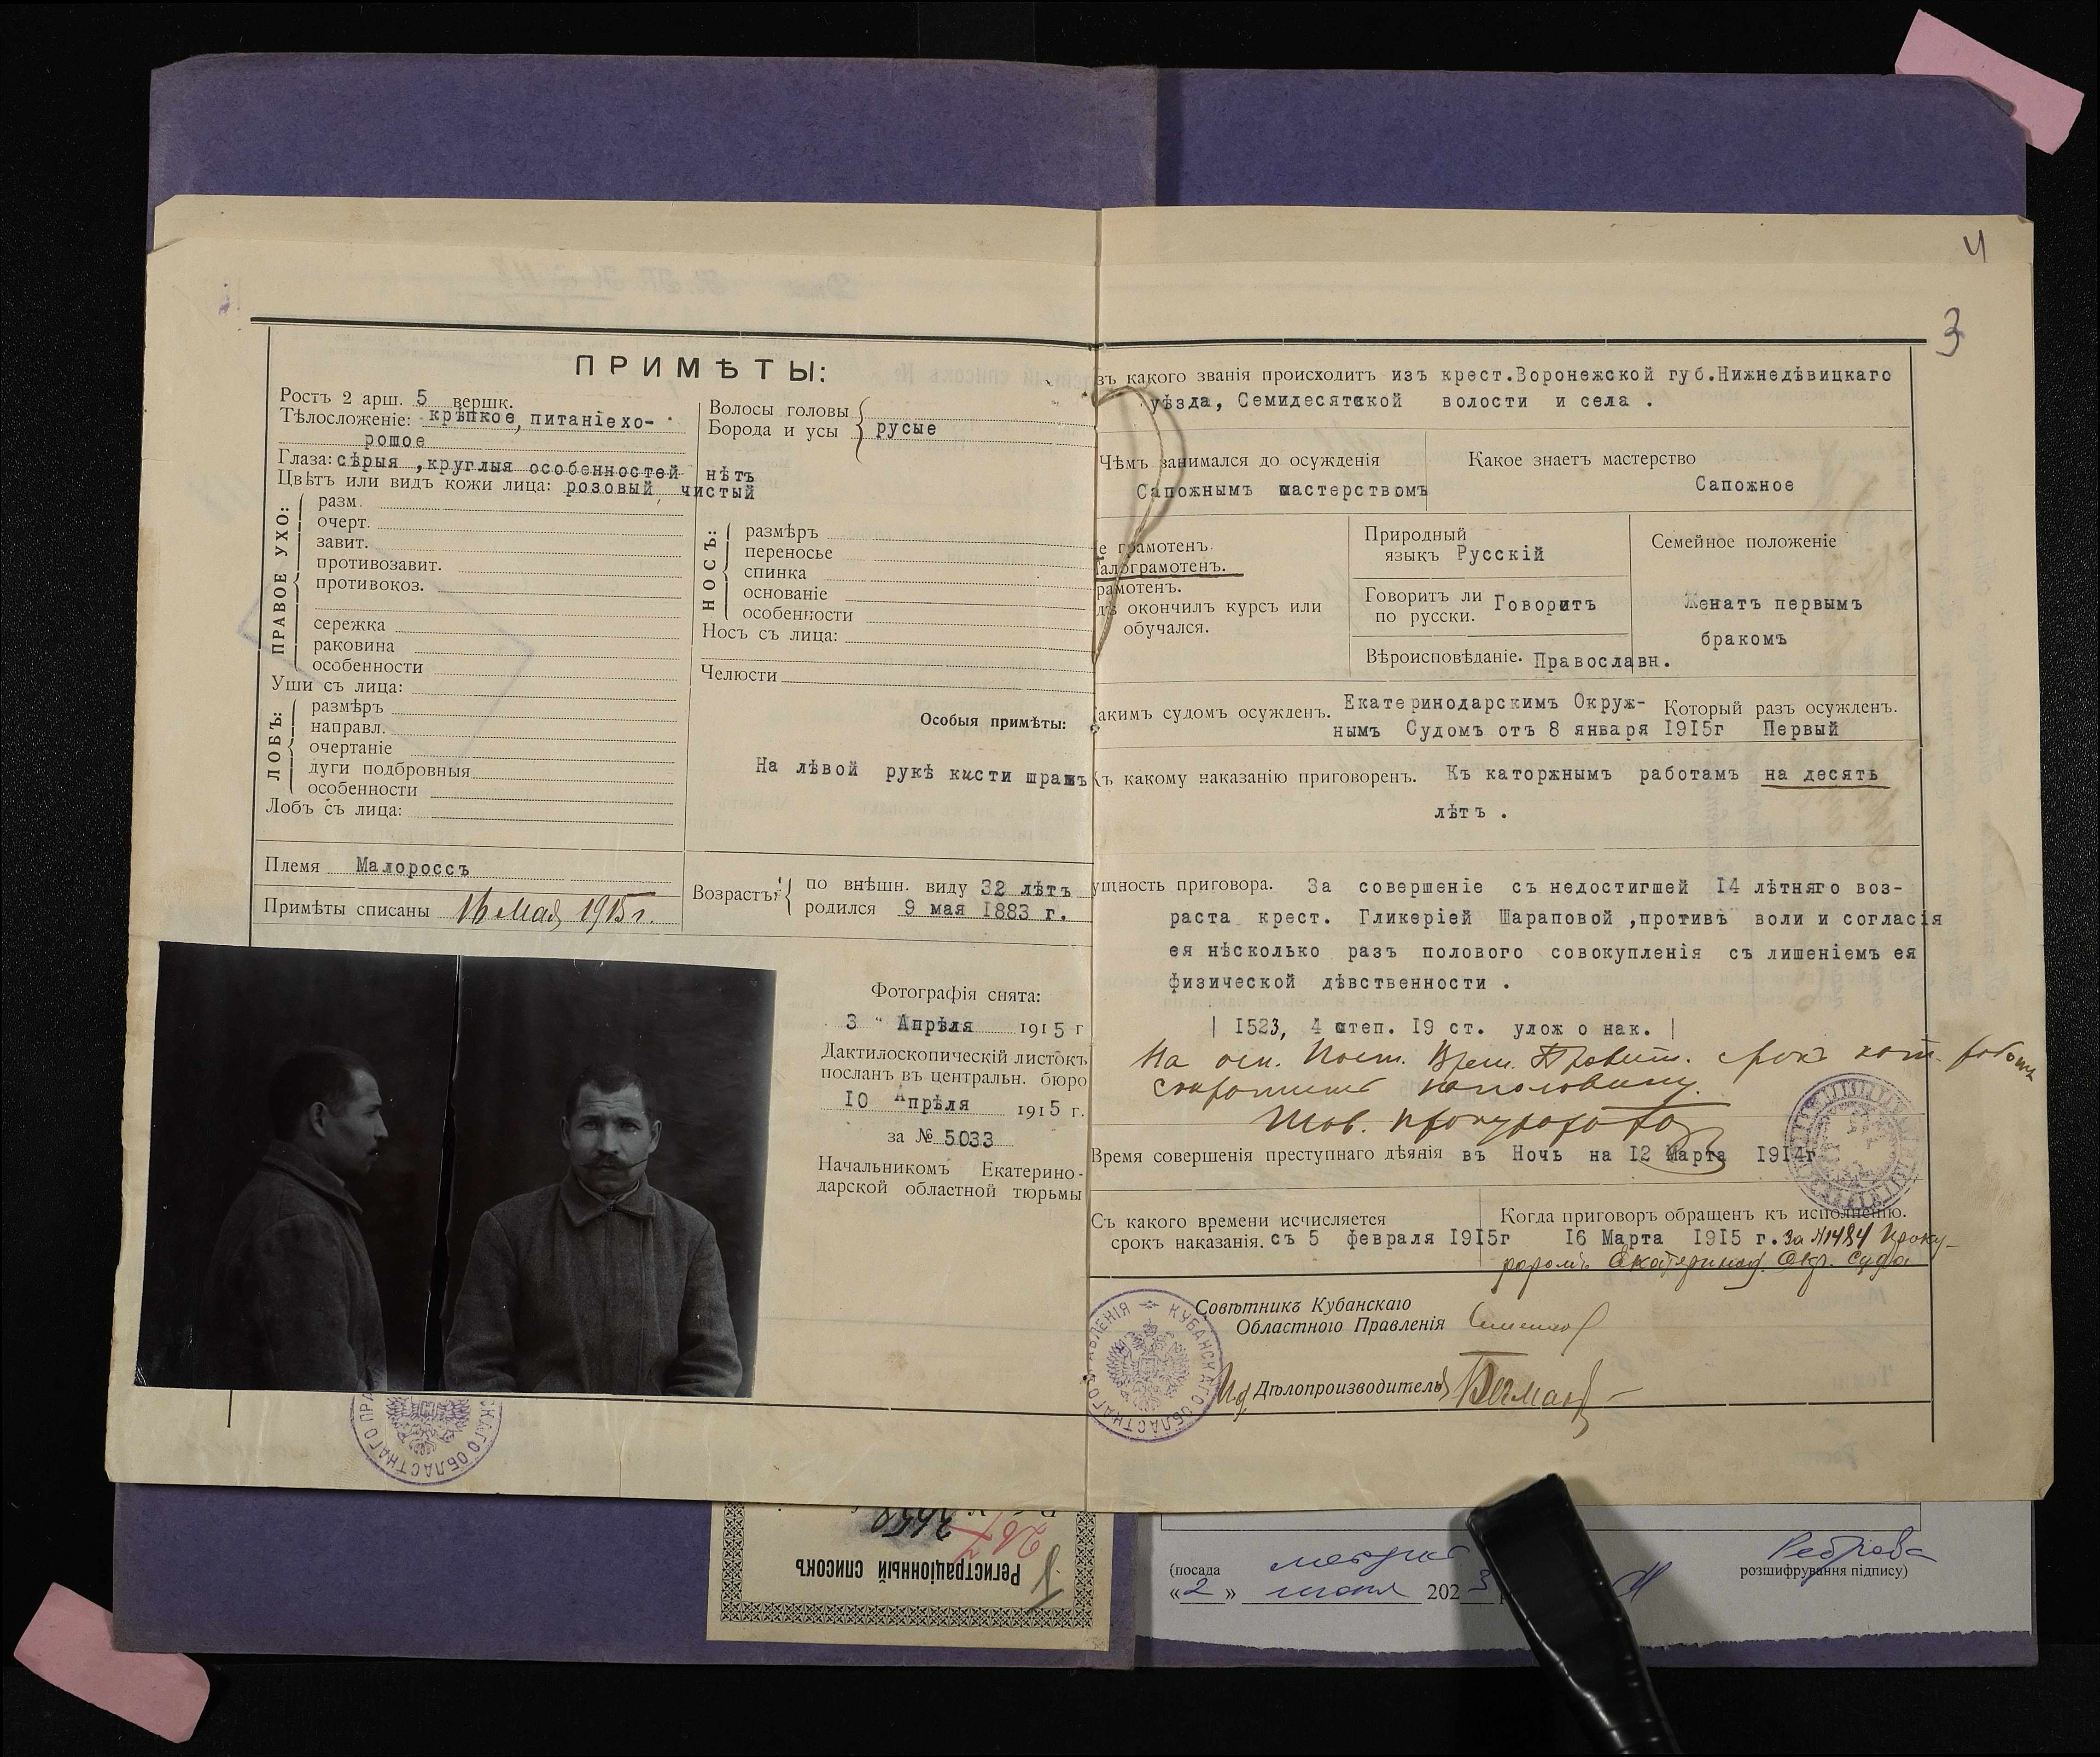 4
3
ПРИМѢТЫ:
Ростъ 2 арш. 5 вершк.
Тѣлосложеніе: крѣпкое, питаніе хо-
рошое
Глаза: сѣрыя ,круглыя особенностей нѣтъ
Цвѣтъ или видъ кожи лица: розовый чистый
Волосы головы
Борода и усы
русые
ПРАВОЕ УХО:
разм.
очерт.
завит.
противозавит.
противокоз.
сережка
раковина
особенности
Уши съ лица:
ЛОБЪ:
размѣръ
направл.
очертаніе
дуги подбровныя
особенности
Лобъ съ лица:
НОСЪ:
размѣръ
переносье
спинка
основаніе
особенности
Носъ съ лица:
Челюсти
Особыя примѣты:
На лѣвой рукѣ кисти шрамъ
Племя Малороссъ
Примѣты списаны 16 Мая 1915 г.
Возрастъ:
по внѣшн. виду 32 лѣтъ
родился 9 мая 1883 г.
Фотографія снята:
3 " Апрѣля 1915 г
Дактилоскопическій листокъ
посланъ въ центральн. бюро
10 Апрѣля 1915 г.
за № 5033
Начальникомъ Екатерино-
дарской областной тюрьмы
зъ какого званія происходитъ изъ крест.Воронежской губ.Нижнедѣвицкаго
уѣзда, Семидесятской волости и села .
Чѣмъ занимался до осужденія
Сапожнымъ мастерствомъ
Какое знаетъ мастерство
Сапожное
е грамотенъ.
алограмотенъ.
рамотенъ.
дѣ окончилъ курсъ или
обучался.
Природный
языкъ Русскій
Говоритъ ли
по русски. Говоритъ
Вѣроисповѣданіе. Православн.
Семейное положеніе
Женатъ первымъ
бракомъ
акимъ судомъ осужденъ. Екатеринодарскимъ Окруж-
нымъ Судомъ отъ 8 января 1915г
Который разъ осужденъ.
Первый
Къ какому наказанію приговоренъ. Къ каторжнымъ работамъ на десять
лѣтъ .
ущность приговора. За совершеніе съ недостигшей 14 лѣтняго воз-
раста крест. Гликеріей Шараповой ,противъ воли и согласія
ея нѣсколько разъ полового совокупленія съ лишеніемъ ея
физической дѣвственности .
| 1523, 4 степ. 19 ст. улож о нак. |
На осн. Пост. Врем. Правит. срокъ кат. работъ
сокротить наполовину.
Тов. прокурора
Время совершенія преступнаго дѣянія въ Ночь на 12 Марта 1914г
Съ какого времени исчисляется
срокъ наказанія. съ 5 февраля 1915г
Когда приговоръ обращенъ къ исполненію.
16 Марта 1915 г. За №1484 Проку-
роромъ Екатеринод. Окр. Суда
Совѣтникъ Кубанскаго
Областного Правленія
И.д. Дѣлопроизводитель
КУБАНСКАГО ОБЛАСТНАГО ПРАВЛЕНІЯ
СКАГО ОБЛАСТНАГО ПРА
Регистраціонный списокъ
3658
267
(посада
« 2 » 202 3
Реброва
розшифрування підпису)